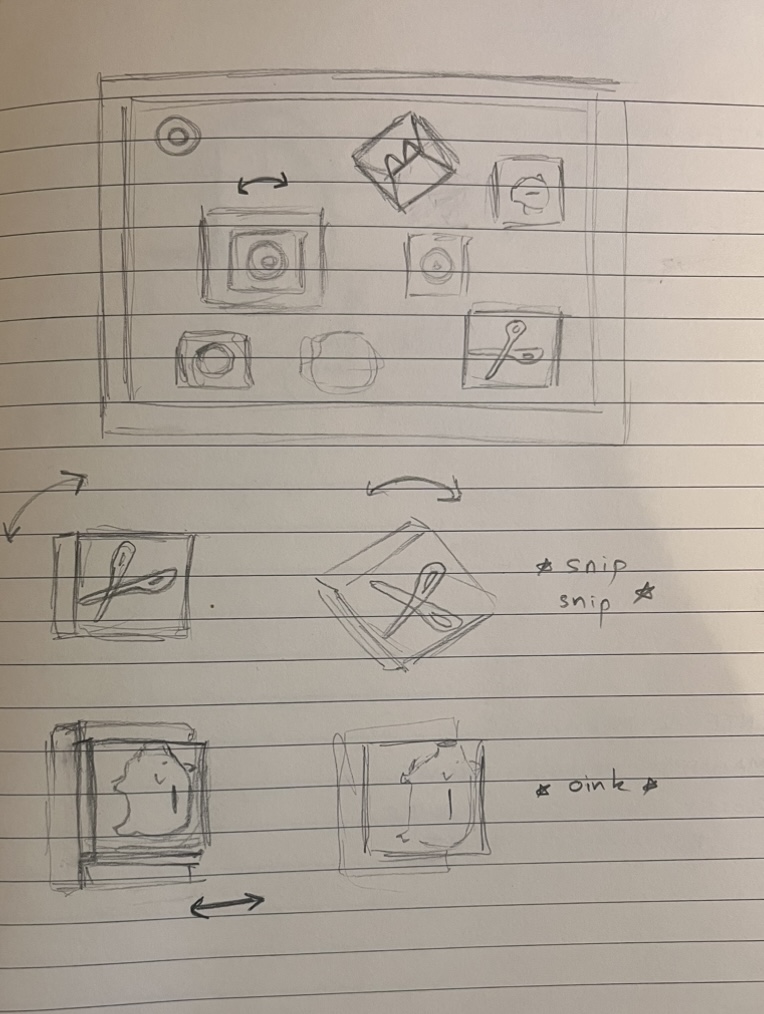 * snip
snip *
* oink *